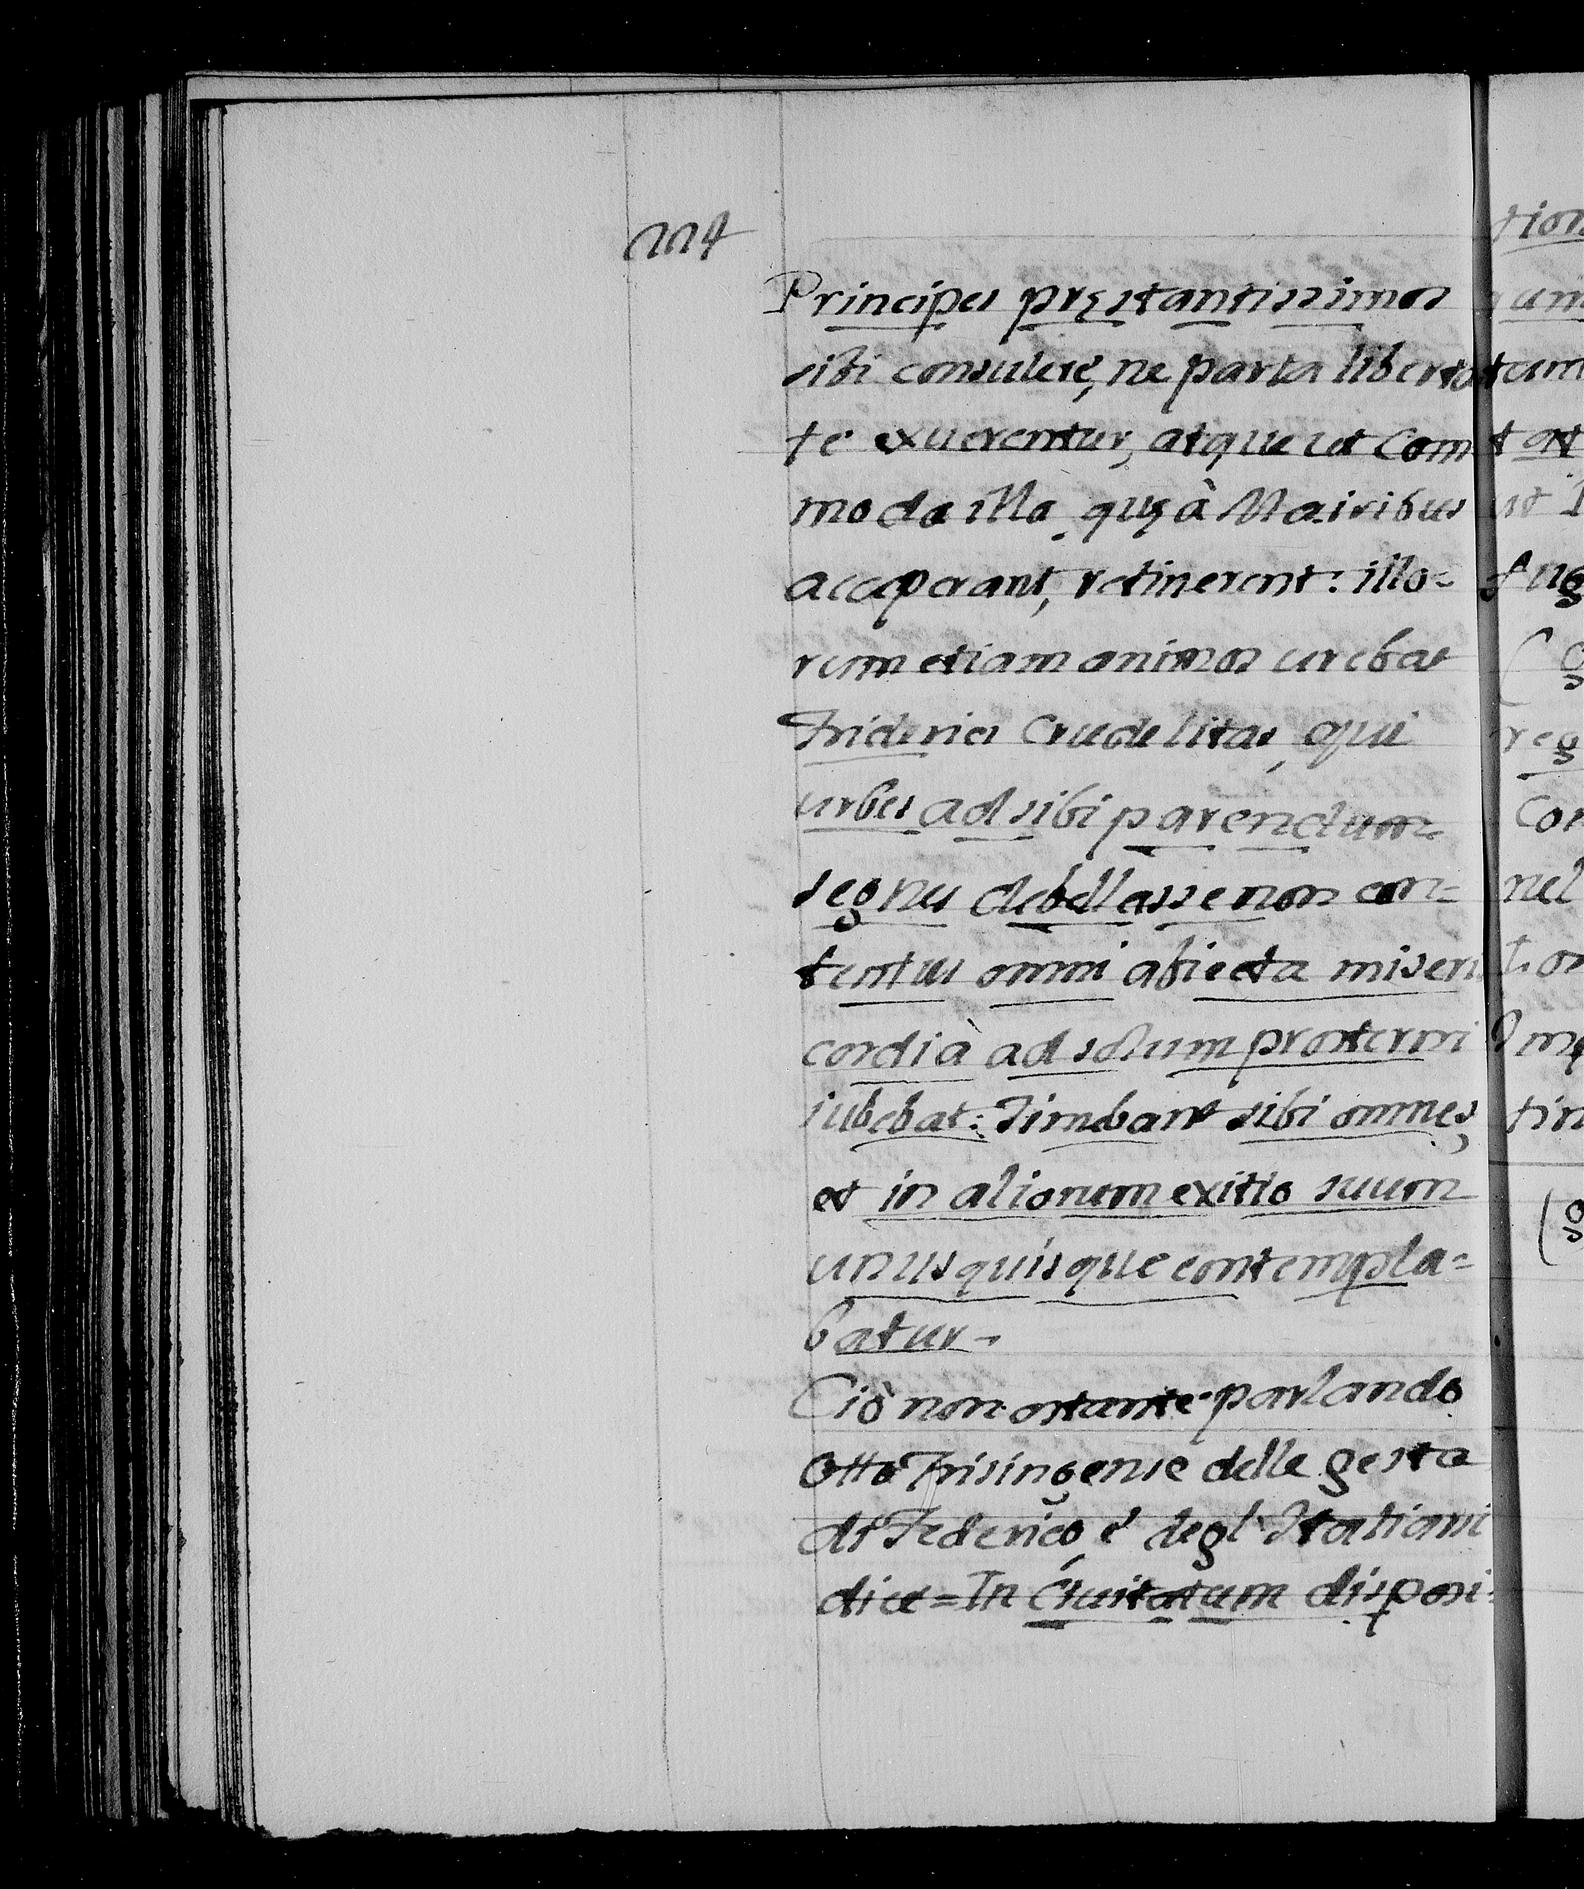 224
Principes pręstantissimos
sibi consulere, ne parta liberta
te exuerentur, atque ut com
moda illa, quę à Maioribus
acceperant, retinerent: illo=
rum etiam animos urebat
Friderici Crudelitas, qui
urbes ad sibi parendum
segnes debellasse non con=
tentus omni abiecta miseri
cordià ad solum prosterni
iubebat: Timebant sibi omnes,
et in aliorum exitio suum
unusquisque contempla=
batur.
Ciò non ostante parlando
Otto Frisingense delle gesta
di Federico, e degl' Italiani
dice = In Civitatum disposi=